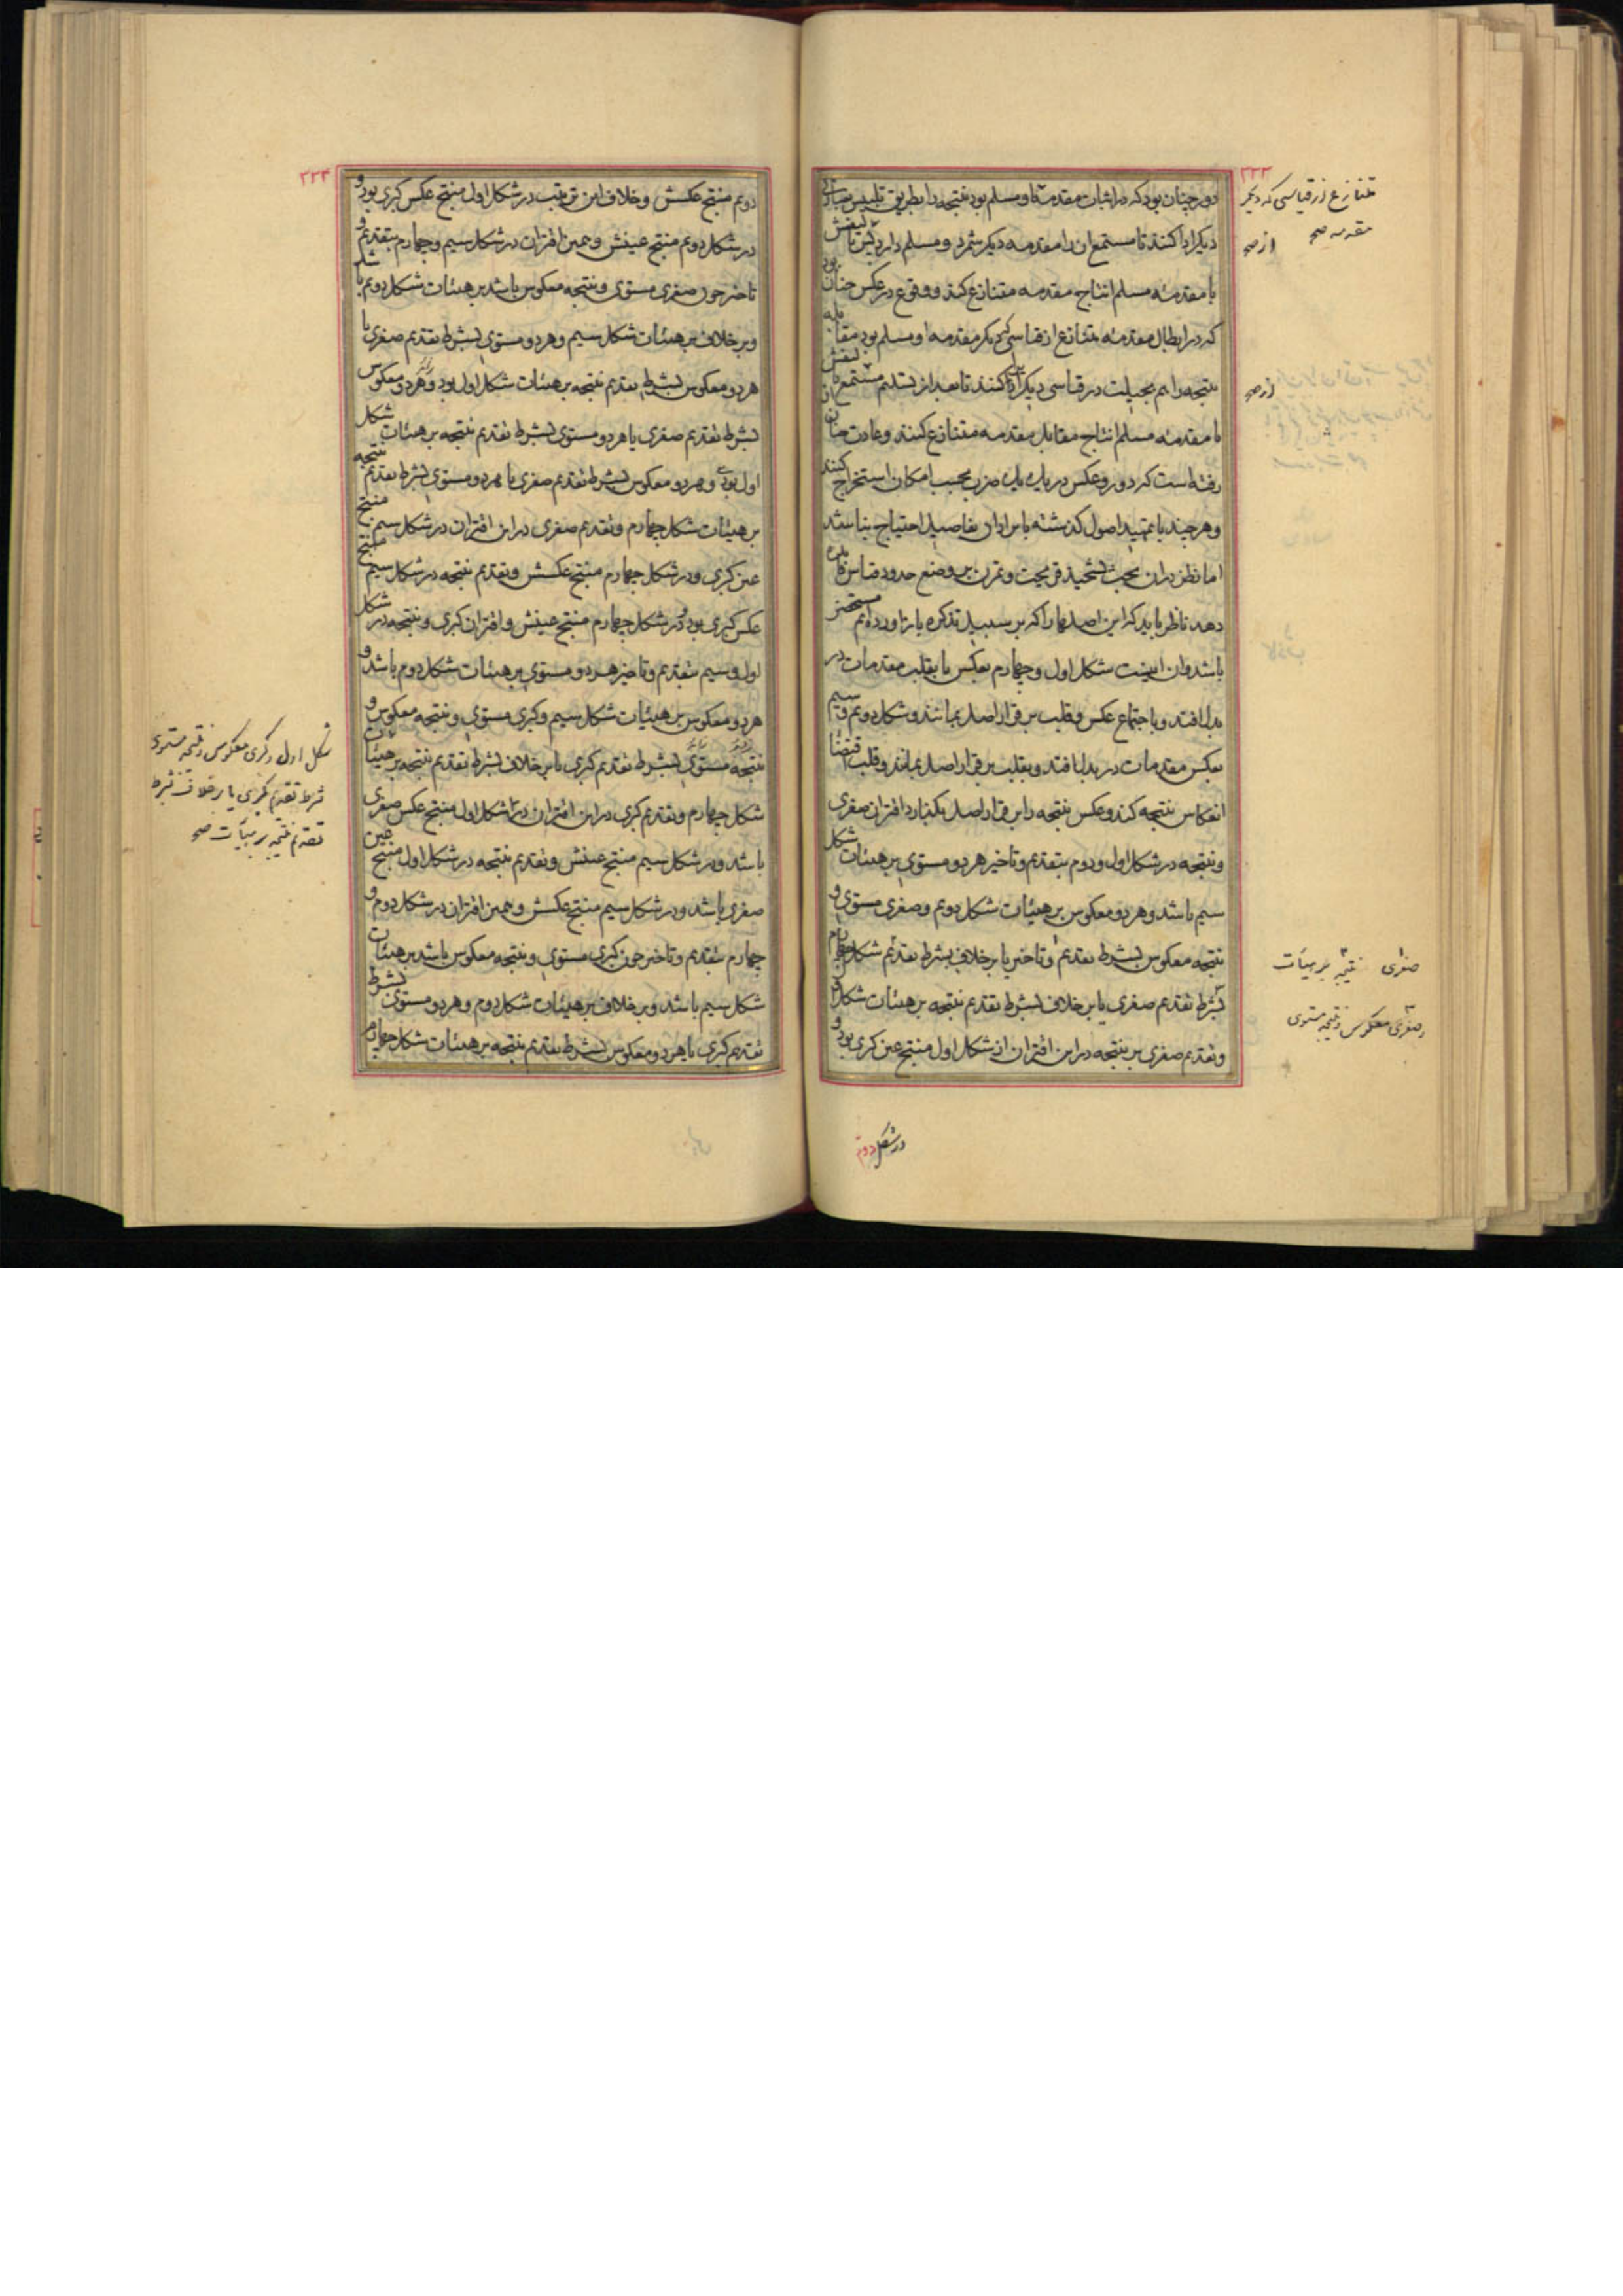 ۲۳۳
دور چنان بود که در اثبات مقدمه او مسلم بود نتیجه را بطریق تلبیس
دیکر ادا کنند تا مستمع انرا مقدمه دیکر شمرد و مسلم دارد پس بالیفش
با مقدمهٔ مسلم انتاج مقدمه متنازع کند و وقوع در عکس چنان بود
که در ابطال مقدمهٔ متنازع از قیاسی که دیکر مقدمه او مسلم بود مقابله
نتیجه را هم بحیلت در قیاسی دیکر ادا کنند تا بعد از تسلیم مستمع
با مقدمهٔ مسلم انتاج مقابل مقدمه متنازع کنند و عادت چنان
رفته است که دور و عکس در پاره پاره ضرب بحسب امکان استخراج کنند
و هر چند با تمهید اصول کذشته بایراد ان تفاصیل احتیاج نباشد
اما نظر دران بجهت تشحیذ قریحت و تمرن بر وضع حدود قیاس فایده
دهد ناظر باید که این اصلها را که بر سبیل تذکره باز اورده‌ایم مستحضر
باشد وان اینست شکل اول و چهارم بعکس یا بقلب مقدمات در
بدل افتد و با جتماع عکس و قلب بر قرار اصل بمانند و شکل دویم و سیم
بعکس مقدمات در بدل افتد و بقلب بر قرار اصل بماند و قلب
انعکاس نتیجه کند و عکس نتیجه را بر قرار اصل بکذارد اقتران صغری
و نتیجه در شکل اول و دوم بتقدیم و تاخیر هر دو مستوی بر هیئات شکل
سیم باشد و هر دو معکوس بر هیئات شکل دویم و صغری مستوی و
نتیجه معکوس بشرط تقدیم و تاخیر یا بر خلاف بشرط تقدیم شکل چهارم
بشرط تقدیم صغری یا بر خلاف بشرط تقدیم نتیجه بر هیئات شکل
و تقدیم صغری بر نتیجه در این اقتران از شکل اول منتج عین کبری بود و
در شکل دوم
متنازع از قیاسی که دیکر
مقدمه صح
از صح
از صح
صغری نتیجه بر هیآت
و صغری معکوس و نتیجه مستوی
۲۳۴
دویم منتج عکسش و خلاف این ترتیب در شکل اول منتج عکس کبری بود و
در شکل دویم منتج عینش و همین اقتران در شکل سیم و چهارم بتقدیم و
تاخیر چون صغری مستوی و نتیجه معکوس باشد بر هیئات شکل دویم باشد
و بر خلاف بر هیئات شکل سیم و هر دو مستوی بشرط تقدیم صغری یا
هر دو معکوس بشرط تقدیم نتیجه بر هیئات شکل اول بود و هر دو معکوس
بشرط تقدیم صغری یا هر دو مستوی بشرط تقدیم نتیجه بر هیئات شکل
اول بود و هر دو معکوس بشرط تقدیم صغری یا هر دو مستوی بشرط تقدیم نتیجه
بر هیئات شکل چهارم و تقدیم صغری در این اقتران در شکل سیم منتج
عین کبری و در شکل چهارم منتج عکسش و تقدیم نتیجه در شکل سیم منتج
عکس کبری بود و در شکل چهارم منتج عینش و اقتران کبری و نتیجه در شکل
اول و سیم بتقدیم و تاخیر هر دو مستوی بر هیئات شکل دوم باشد و
هر دو معکوس بر هیئات شکل سیم و کبری مستوی و نتیجه معکوس و
نتیجه مستوی بشرط تقدیم کبری یا بر خلاف بشرط تقدیم نتیجه بر هیئات
شکل چهارم و تقدیم کبری در این اقتران در شکل اول منتج عکس صغری
باشد و در شکل سیم منتج عینش و تقدیم نتیجه در شکل اول منتج عین
صغری باشد و در شکل سیم منتج عکسش و همین اقتران در شکل دوم و
چهارم بتقدیم و تاخیر چون کبری مستوی و نتیجه معکوس باشد بر هیئات
شکل سیم باشد و بر خلاف بر هیئات شکل دوم و هر دو مستوی بشرط
تقدیم کبری یا هر دو معکوس بشرط تقدیم نتیجه بر هیئات شکل چهارم
شکل اول و کبری معکوس و نتیجه مستوی
بشرط تقدیم کبری یا بر خلاف بشرط
تقدیم نتیجه بر هیآت صح